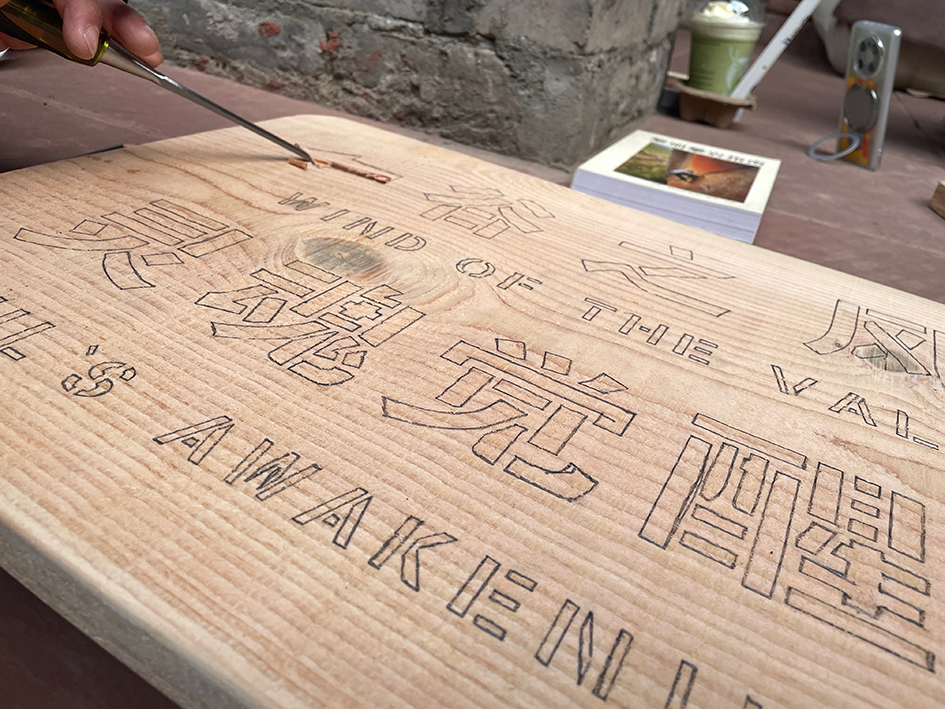 谷之风
WIND OF THE VAL
灵魂觉醒
UL'S AWAKENI